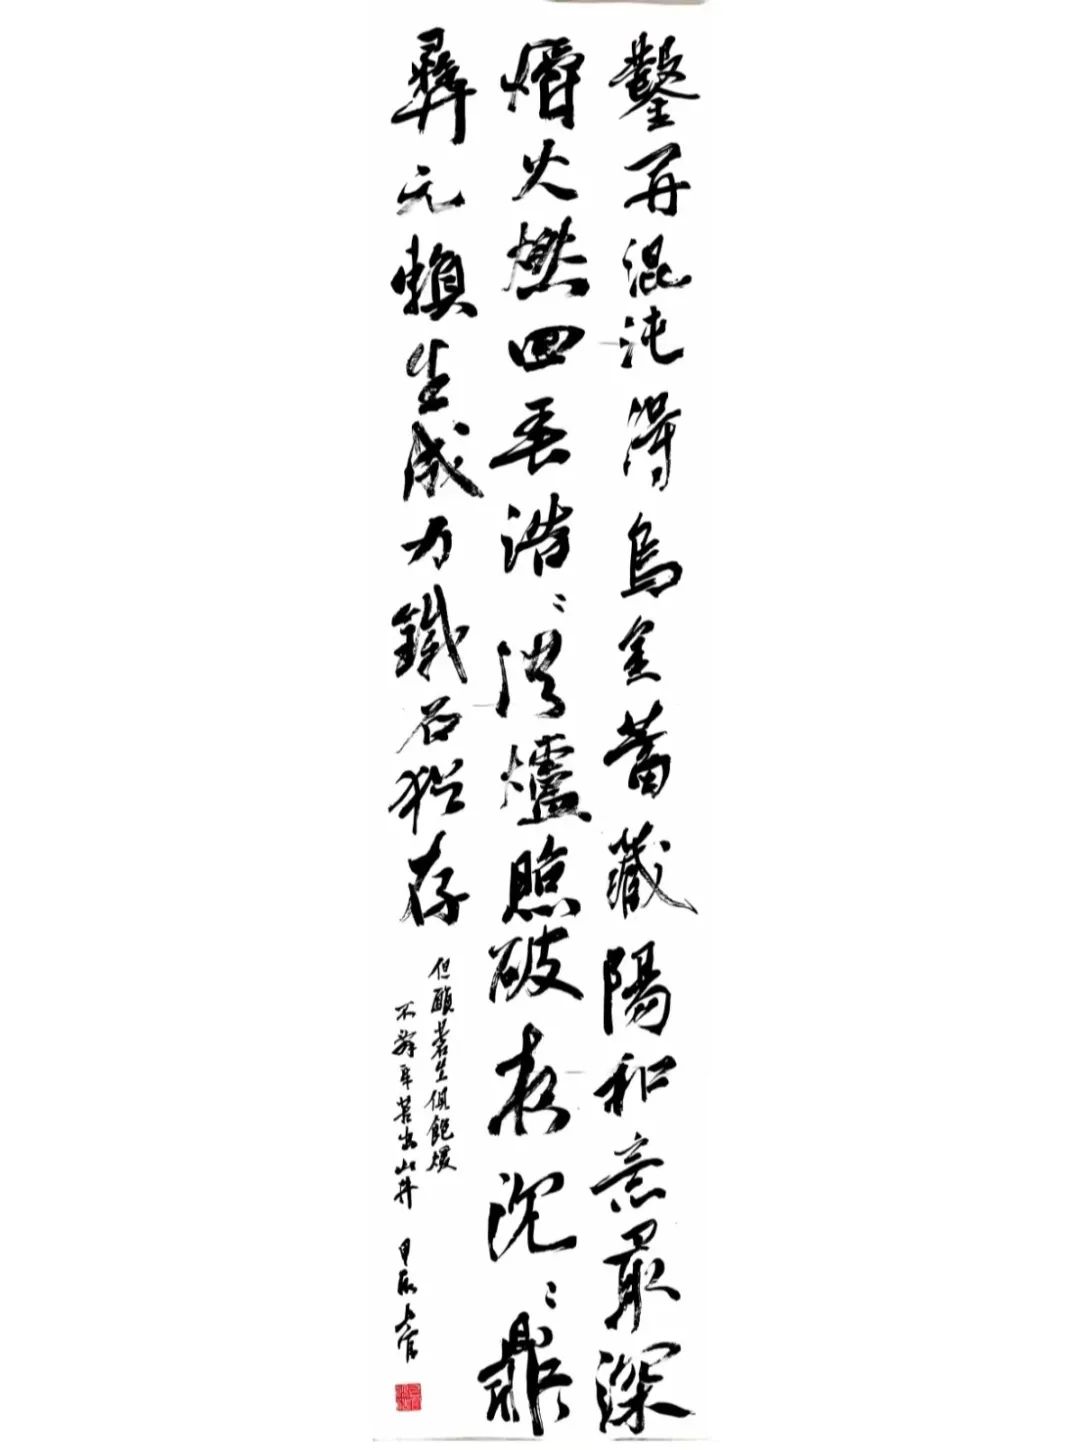 鑿开混沌得烏金蓄藏陽和意最深
爝火燃回春浩〻洪爐照破夜沉〻鼎
彝元賴生成力鐵石猶存
但願蒼生俱飽暖
不辭辛苦出山林 甲辰